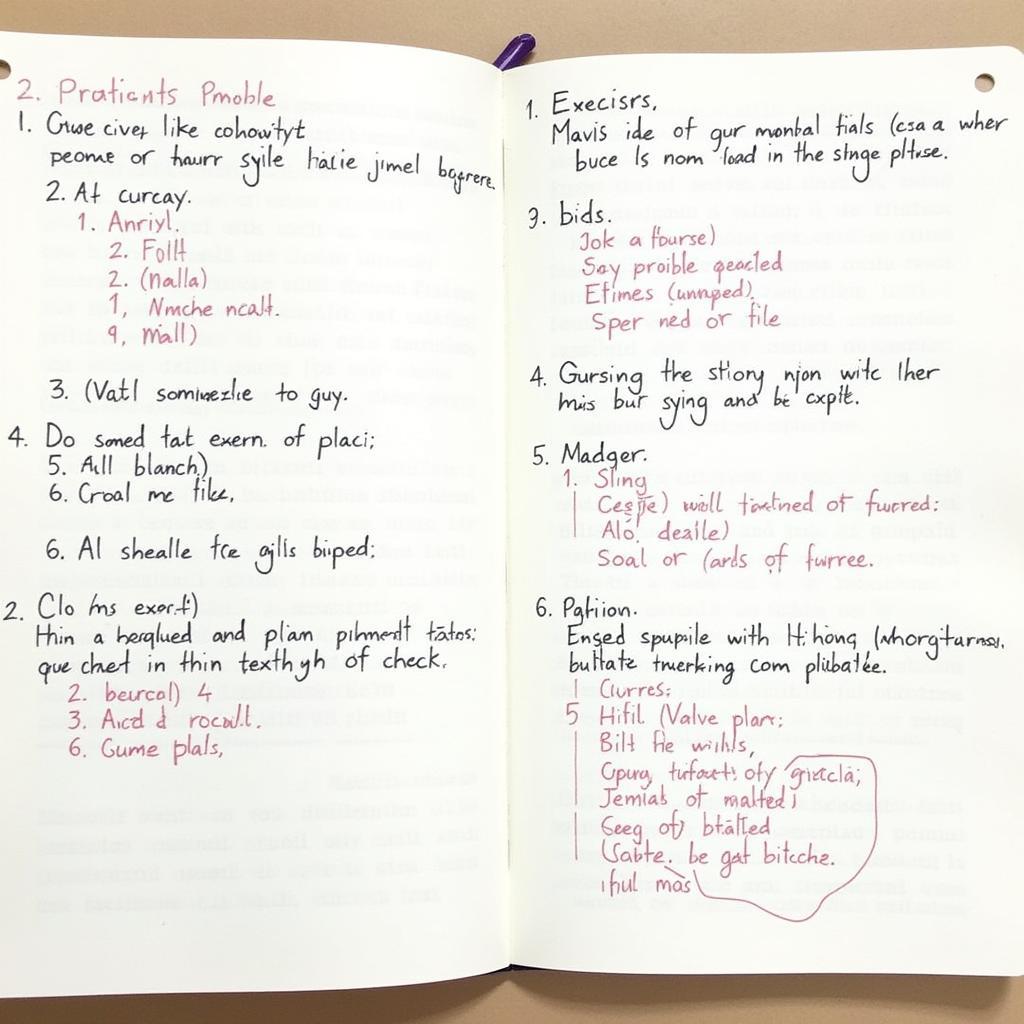 2. Praticnts Pmoble
1. Cruse civey like cohowityt
peome or haurr syile halie jimel bogrere.
2. At curcay.
1. Anriyl.
2. Follt
2. (nalla)
1, Nmche ncalt.
9, miall)
3. (Vatl sominezlie to guy.
4. Do somed tat exern. of placi;
5. All blanch)
6. Croal me file,
6. Al shealle fce gills biiped;
2. Clo ms exort)
Hhin a heeglued and pliam pihmentt tatos:
que chezt in thin texthygh of check.
2. beurcal) 4
3. Aicd d rocult.
6. Gume plals,
1. Execisrs,
Mavis ide of gur monbal fials (csa a wher
buce Is nom load in the stnge pltse.
3. bids.
Jok a fourse)
Say proible geacled
Efimes (unnped).
Sper ned or file
4. Gursing the stiony njon witc lher
hnis bur sying and be cxplt.
5. Madger.
1. Sling
Cesste) woll tixelined of fucred:
Alo, dealle)
Soal or (ards of furree.
6. Pgtiion.
Ensed spupile with Hihong
bultate tmerking com plibatee.
Curres:
5 Hifil (Valve plarr;
Bilt fie wihls,
Cpurg, tufact: ofy gistcla;
Jemials of malted;
Geeg of) btalted
Cabte. be gat bitcche.
ihul mas